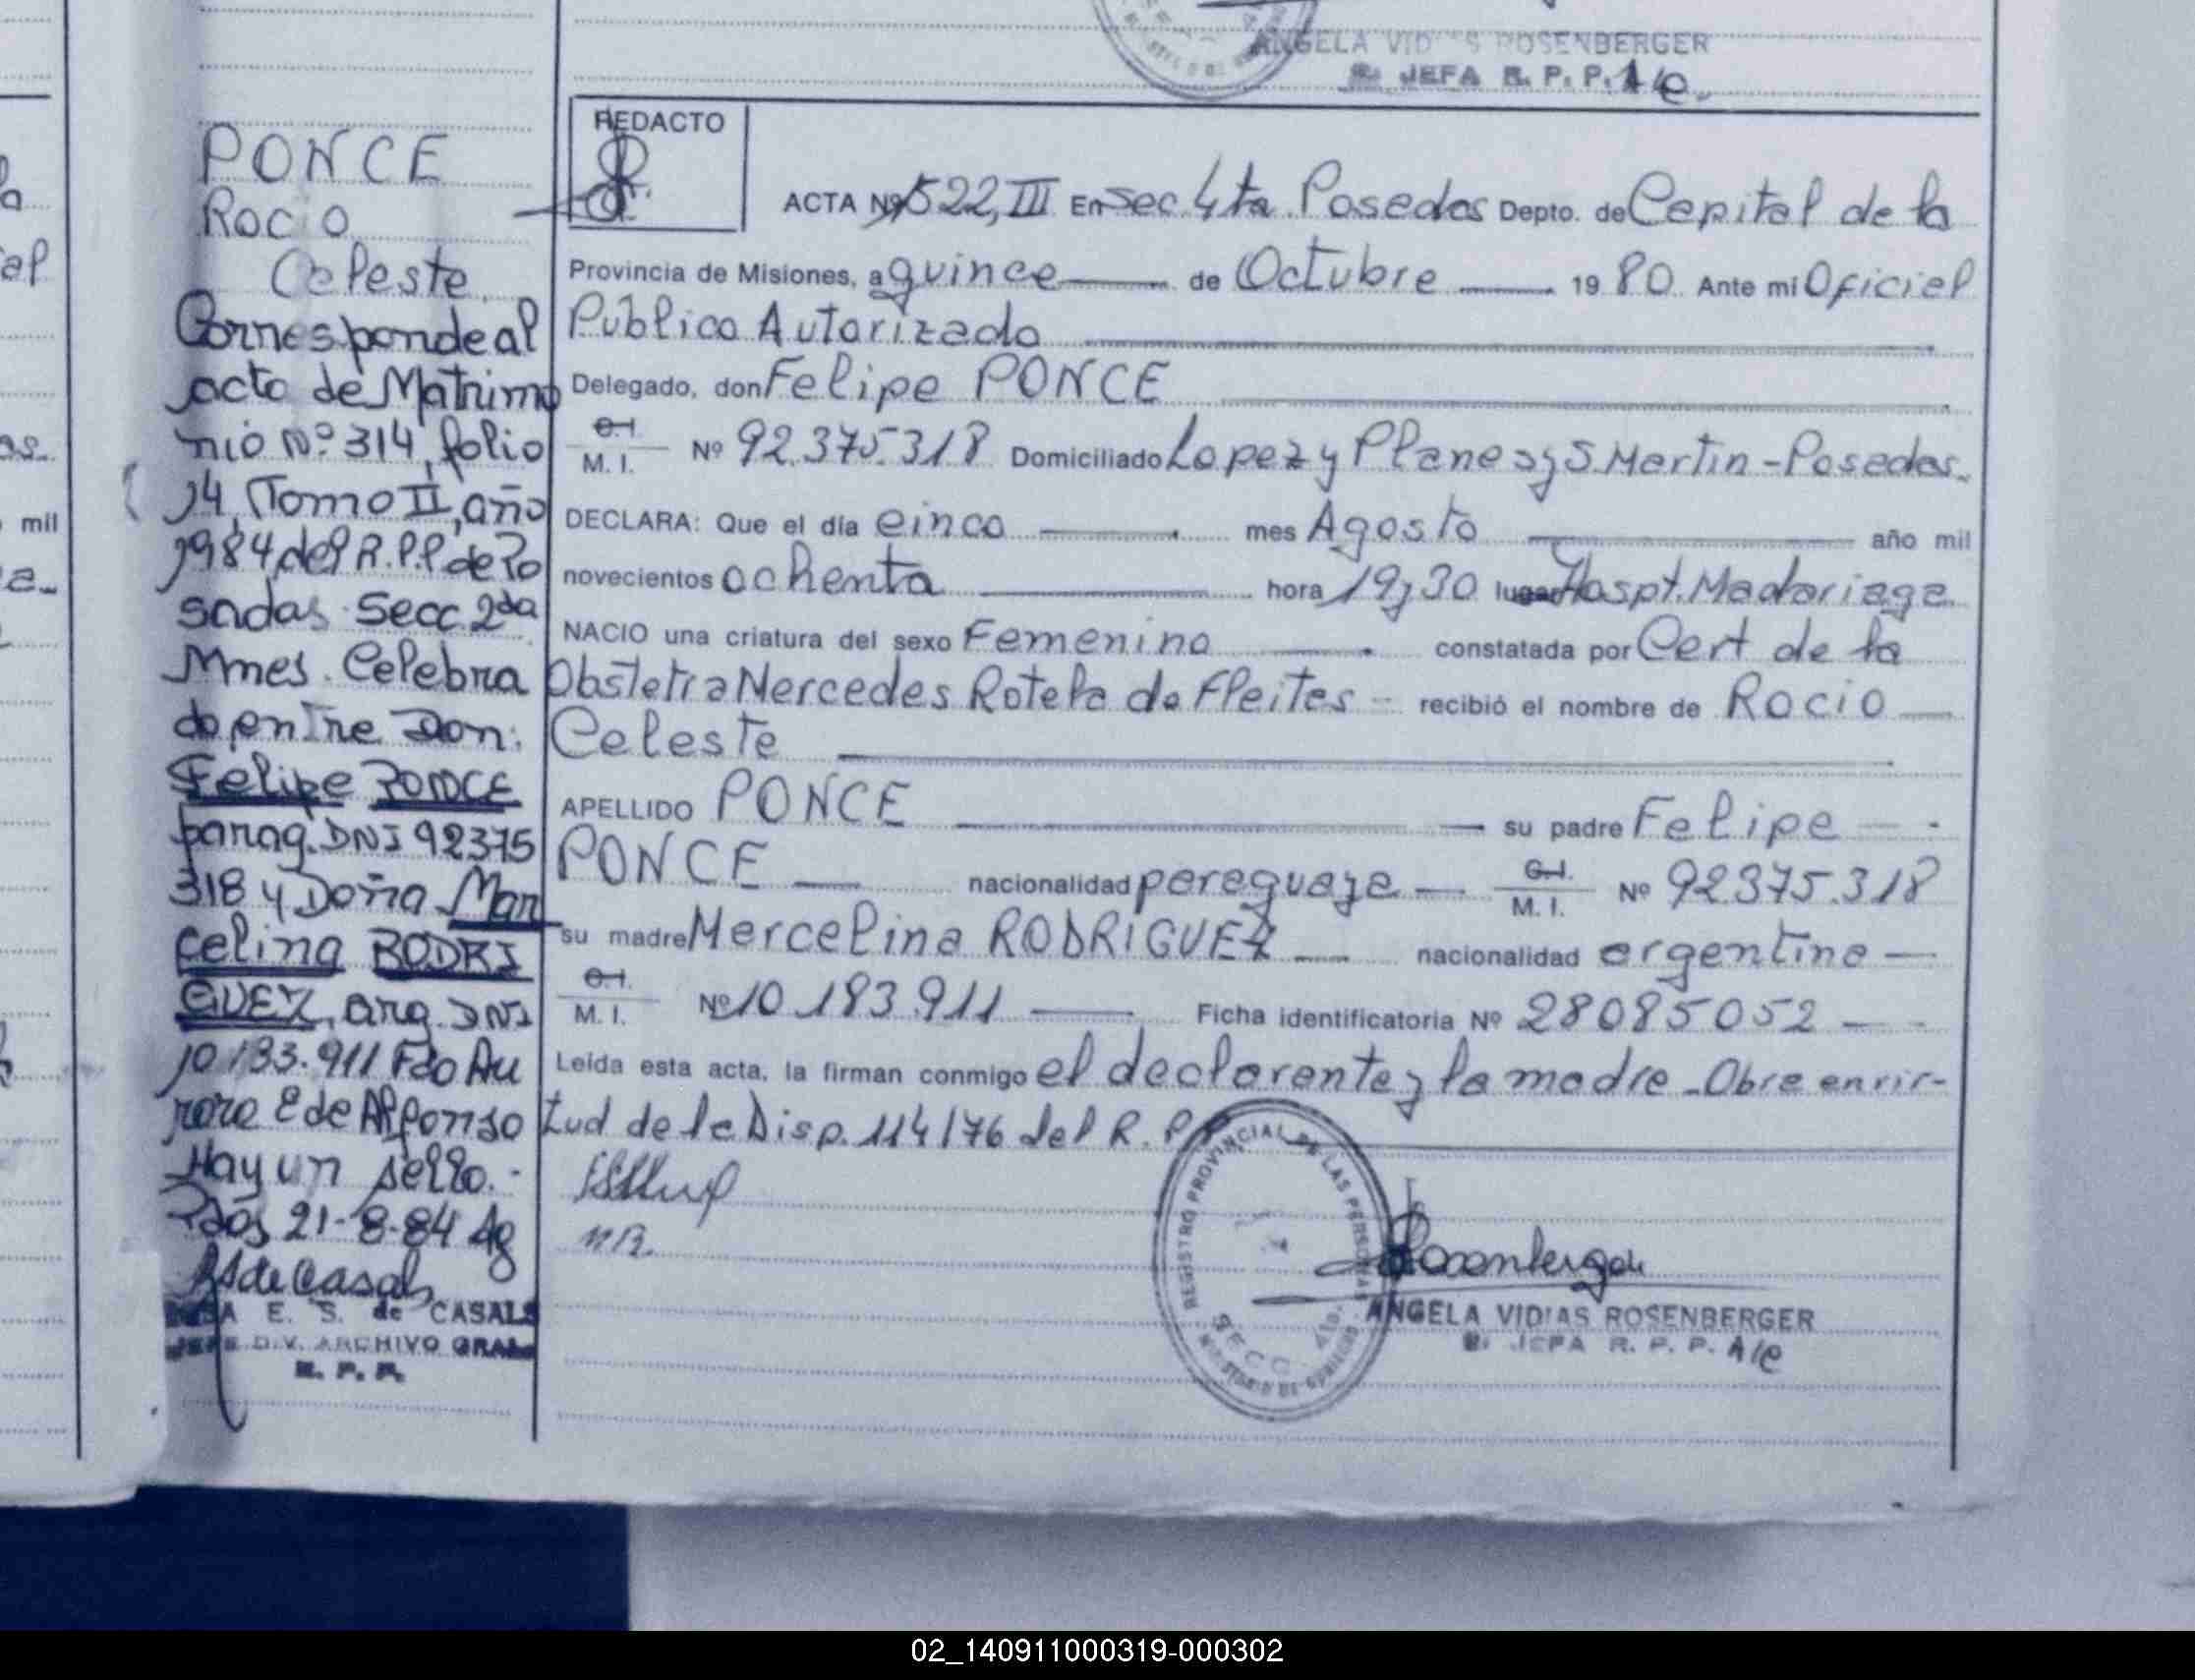 ANGELA VID AS ROSENBERGER
JEFA R. P. P. A/c.
PONCE
Rocio
Celeste.
Corresponde al
acto de Matrimo
nio Nº 314, folio
14, Tomo II, año
1984 del R.P.P. de Po
sadas Secc. 2da
Mnes. Celebra
do entre Don.
Felipe PONCE
parag. DNI 92375
318 y Doña Mar
celina RODRI
GUEZ, arg. DNI
10183.911 Fdo Au
rora E de Alfonso
Hay un sello.-
Pdas, 21-8-84 Ag
E. S. de CASALS
JEFE DIV. ARCHIVO GRAL
R. P. P.
REDACTO
ACTA Nº 522, III En Sec. 4ta Posadas Depto. de Capital de la
Provincia de Misiones, a quince de Octubre 1980 Ante mi Oficial
Público Autorizado
Delegado, don Felipe PONCE
C.I. M. I. Nº 92.375.318 Domiciliado Lopez y Planes y S Martin - Posadas.
DECLARA: Que el día cinco mes Agosto año mil
novecientos ochenta hora 19 y 30 lugar Hospt. Madariaga
NACIO una criatura del sexo Femenino constatada por Cert de la
Obstetra Mercedes Rotela de Fleites - recibió el nombre de Rocio
Celeste
APELLIDO PONCE su padre Felipe
PONCE nacionalidad paraguaya C.I. M. I. Nº 92375.318
su madre Marcelina RODRIGUEZ nacionalidad argentina
C.I. M. I. Nº 10.183.911 Ficha identificatoria Nº 28085052
Leída esta acta, la firman conmigo el declarante y la madre - Obra en vir-
tud de la Disp. 114/76 del R. P.
REGISTRO PROVINCIAL DE LAS PERSONAS
SECC. 4ta.
ANGELA VIDIAS ROSENBERGER
JEFA R. P. P. A/c
02_140911000319-000302